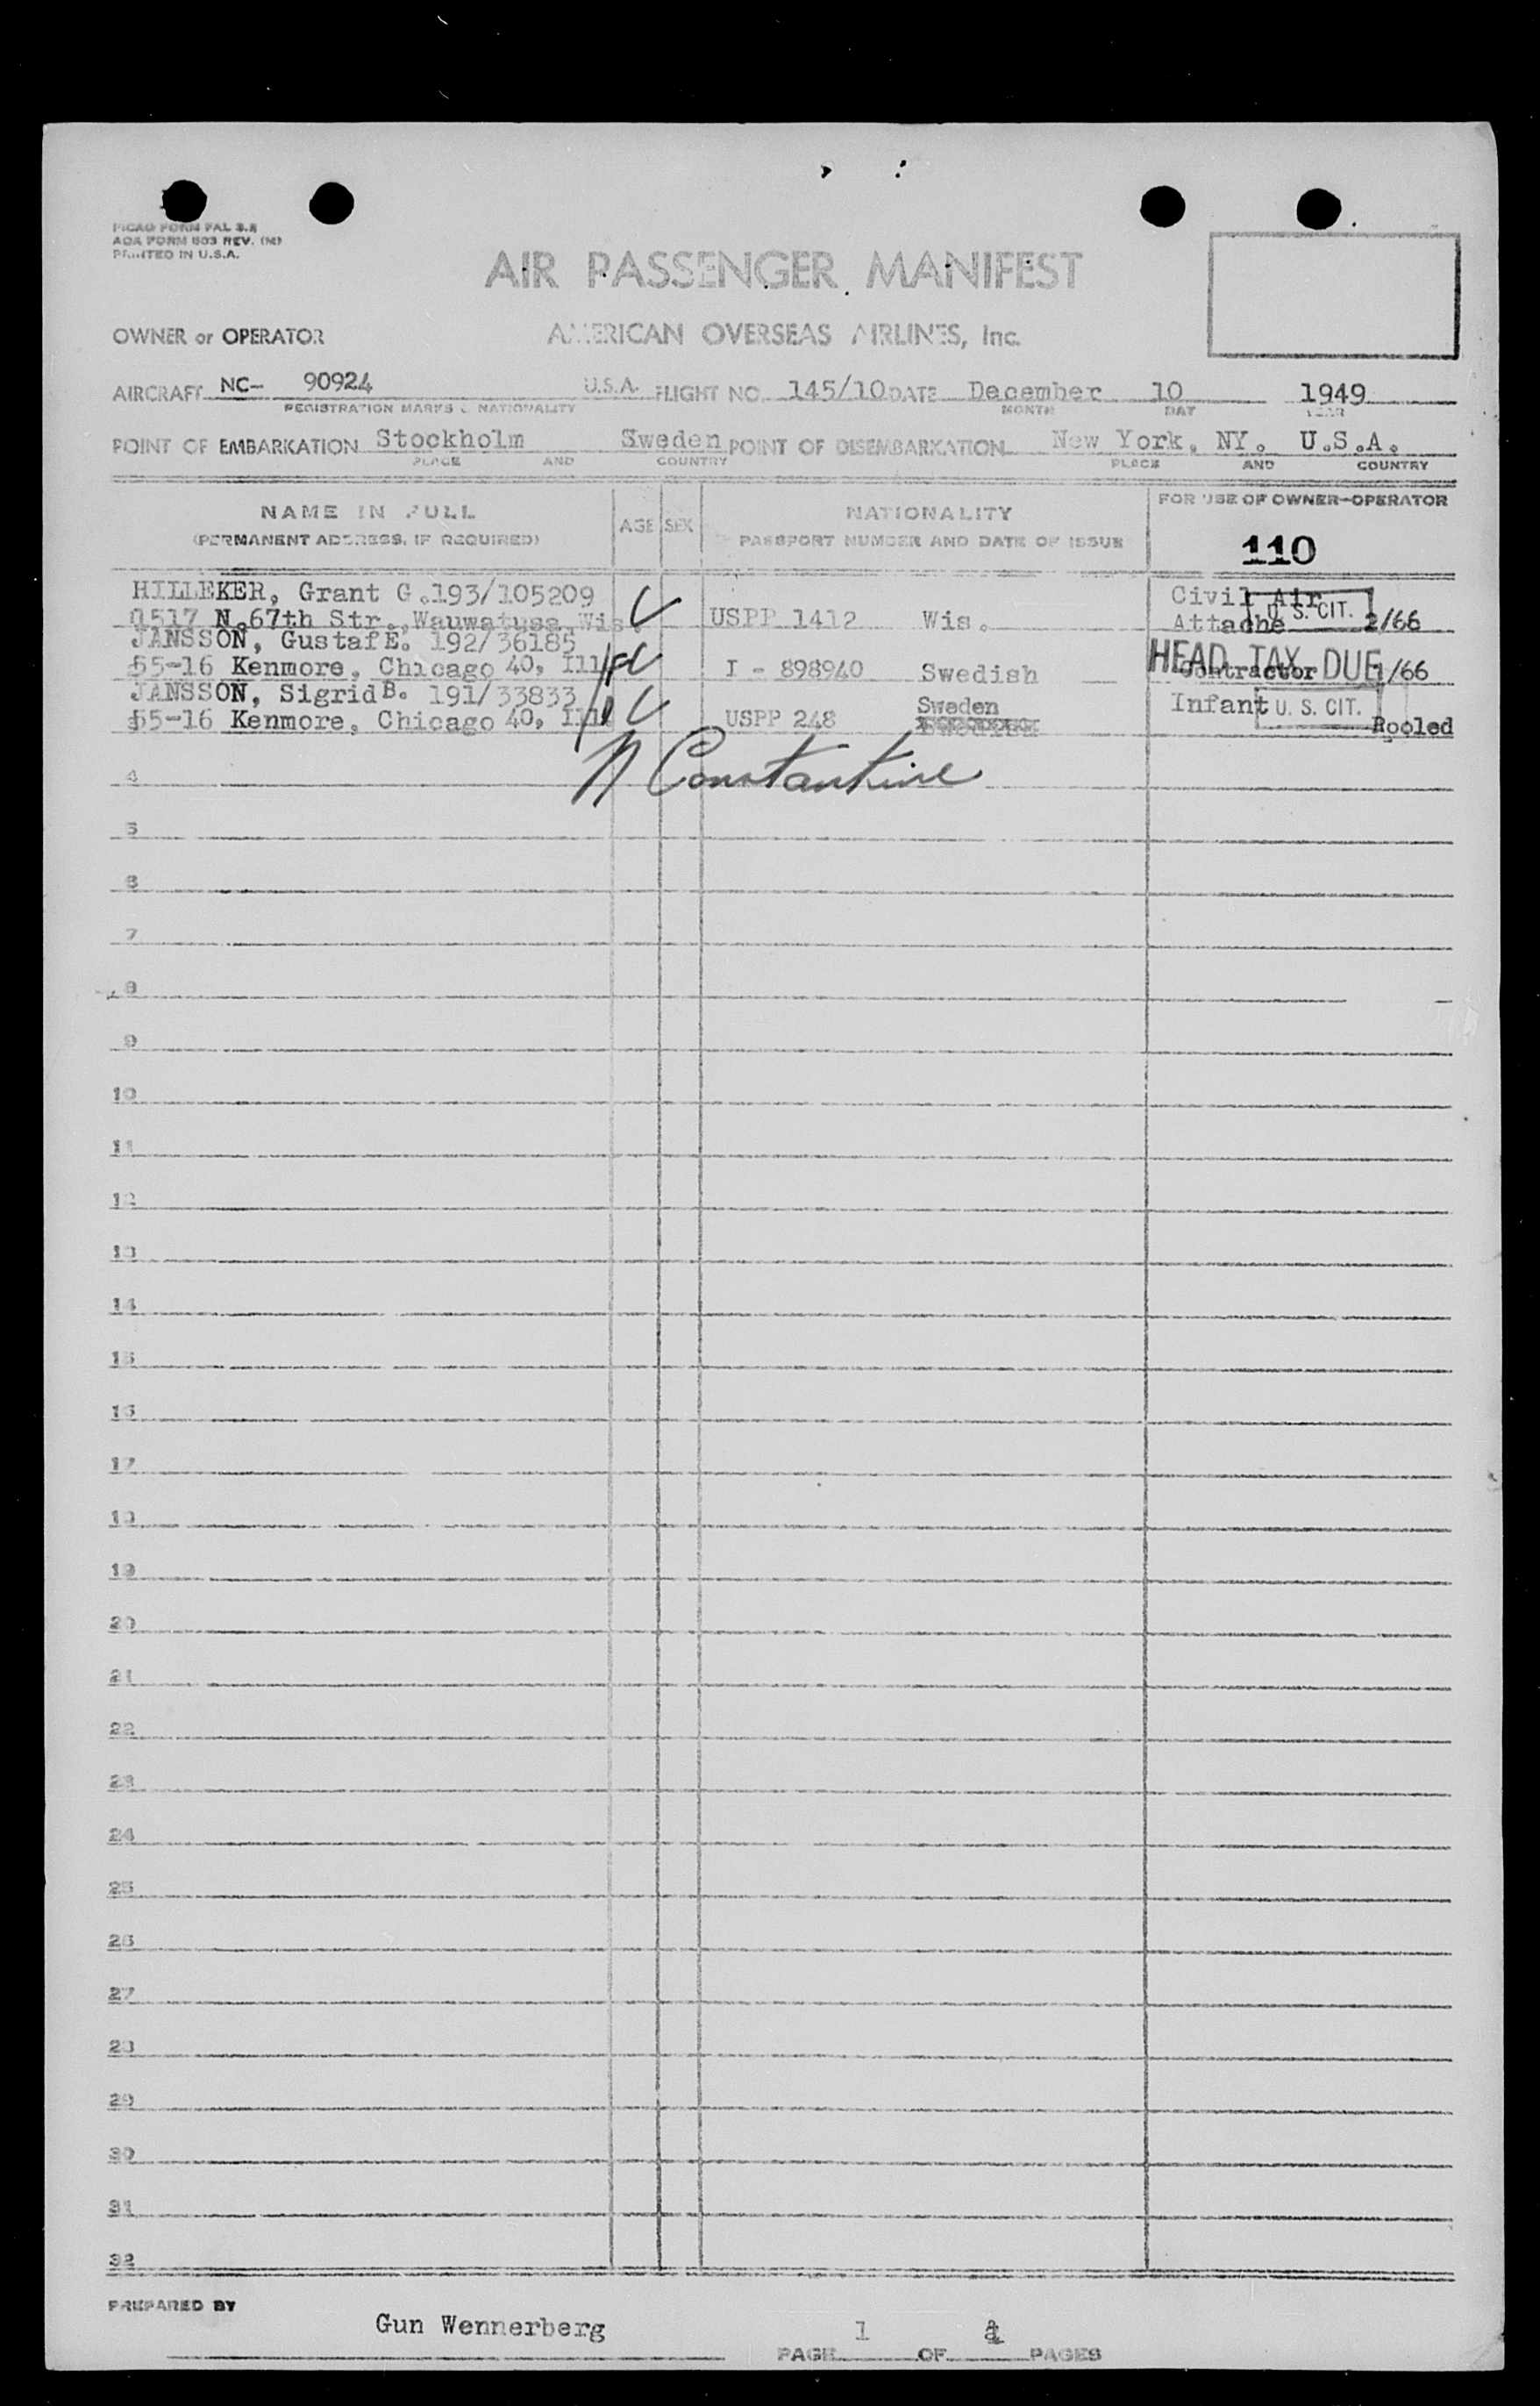 PICAO FORM FAL 3.2
AOA FORM 803 REV. (M)
PRINTED IN U.S.A.
AIR PASSENGER MANIFEST
OWNER or OPERATOR AMERICAN OVERSEAS AIRLINES, Inc.
AIRCRAFT NC- 90924 U.S.A. FLIGHT NO. 145/10 DATE December 10 1949
REGISTRATION MARKS & NATIONALITY MONTH DAY YEAR
POINT OF EMBARKATION Stockholm Sweden POINT OF DISEMBARKATION New York, NY. U.S.A.
PLACE AND COUNTRY PLACE AND COUNTRY
NAME IN FULL AGE SEX NATIONALITY FOR USE OF OWNER-OPERATOR
(PERMANENT ADDRESS, IF REQUIRED) PASSPORT NUMBER AND DATE OF ISSUE 110
HILLEKER, Grant G.193/105209 Civil Air
N.67th Str., Wauwatusa Wis. USPP 1412 Wis. Attache U. S. CIT. 2/66
JANSSON, Gustaf E. 192/36185 HEAD TAX DUE
55-16 Kenmore, Chicago 40, Ill I - 898940 Swedish Contractor 1/66
JANSSON, Sigrid B. 191/33833 Sweden Infant U. S. CIT.
55-16 Kenmore, Chicago 40, Ill USPP 248 Pooled
N Constantine
4
5
6
7
8
9
10
11
12
13
14
15
16
17
18
19
20
21
22
23
24
25
26
27
28
29
30
31
32
PREPARED BY Gun Wennerberg
PAGE 1 OF PAGES